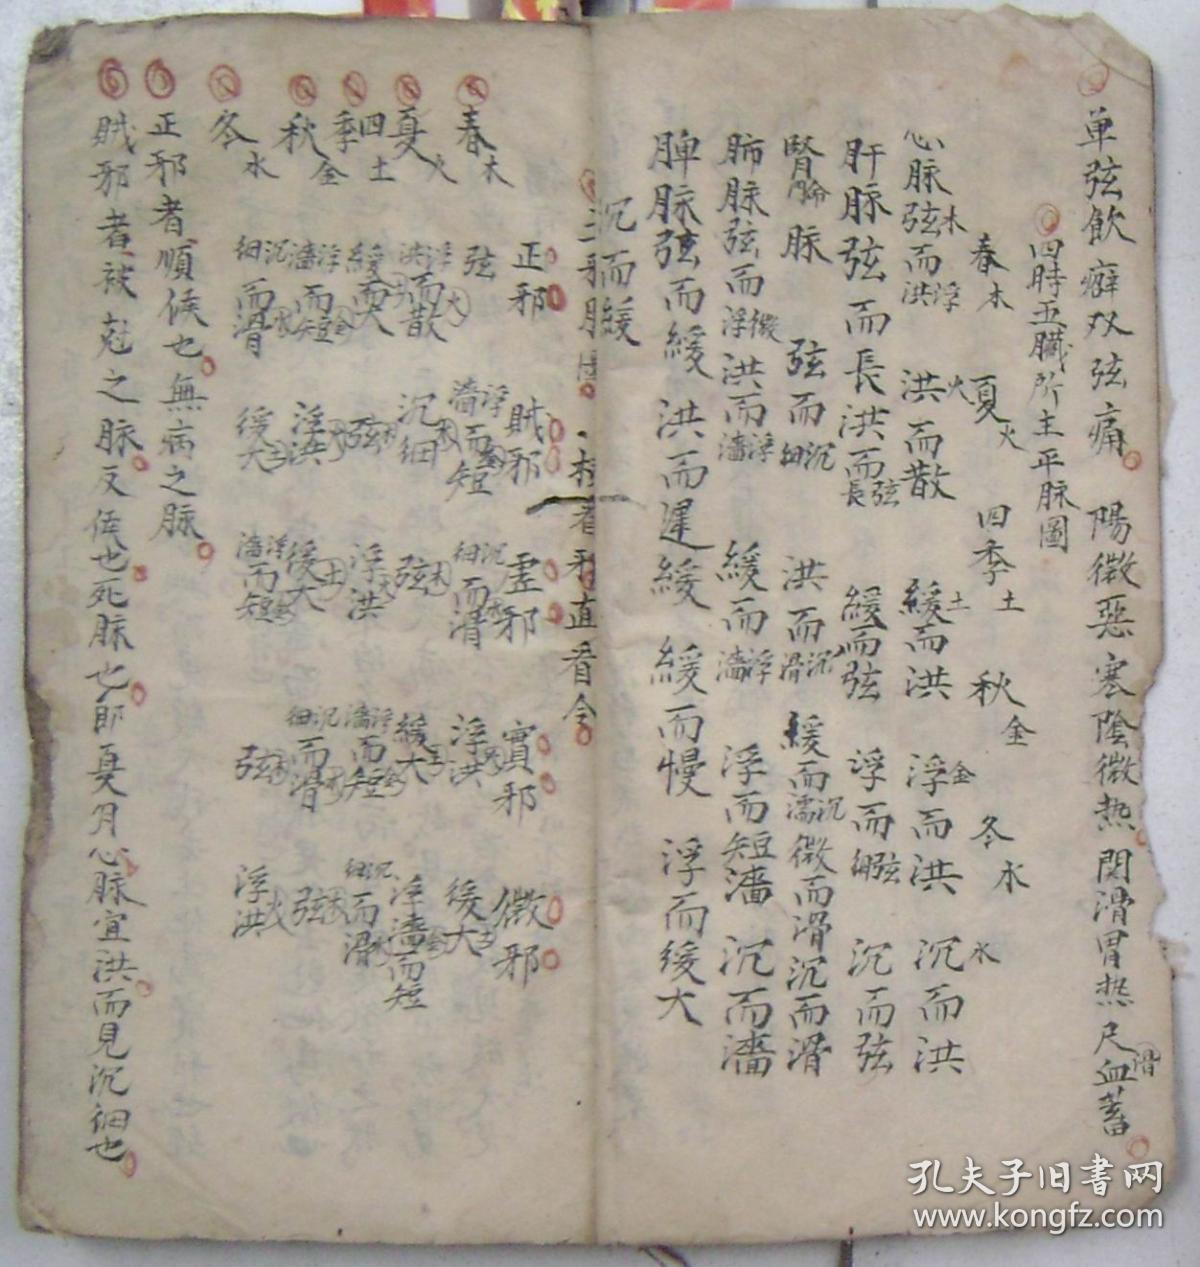 單弦飲癖双弦痛 陽微惡寒陰微熱 関滑胃热尺血蓄
滑
四時五臟所主平脉圖
春木 夏火 四季土 秋金 冬水
心脉弦木而洪浮 洪火而散 緩土而洪 浮金而洪 沉水而洪
肝脉弦而長 洪而長弦 緩而弦 浮而細弦 沉而弦
腎脉 弦而細沉 洪而滑沉 緩而濡沉 微而滑 沉而滑
肺脉弦而浮微 洪而濇浮 緩而濇浮 浮而短濇 沉而濇
脾脉弦而緩 洪而遲緩 緩而慢 浮而緩大
沉而緩
看 直看令
正邪 賊邪 虛邪 實邪 微邪
春木 弦 濇浮而短金 細沉而滑水 浮洪火 緩大土
夏火 洪浮而散火 沉細水 弦木 緩大土 浮濇金而短
四季土 緩而大 弦木 浮洪火 濇浮而短金 細沉而滑水
秋金 濇浮而短金 浮洪火 緩大土 細沉而滑水 弦木
冬水 細沉而滑水 緩大土 濇浮而短金 弦木 浮洪火
正邪者順候也無病之脉
賊邪者被尅之脉反候也死脉也即夏月心脉宜洪而見沉細也
孔夫子旧书网
www.kongfz.com